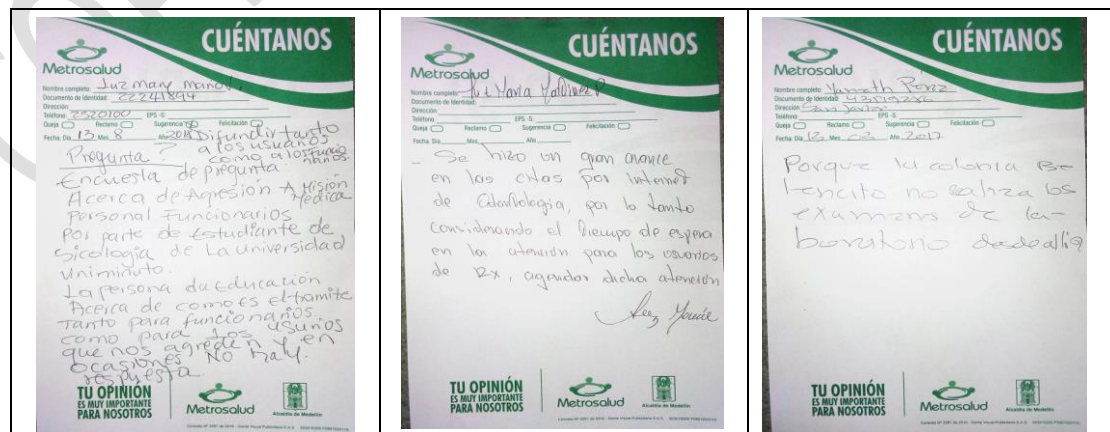 CUÉNTANOS
Metrosalud
Nombre completo: Luz mary
Documento de Identidad: 22241894
Dirección:
Teléfono: 2520100 EPS -S:
Queja Reclamo Sugerencia Felicitación
Fecha: Día 13 Mes 8 Año
Difundir tanto
a los usuarios
como a los funcio
narios.
Pregunta?
Encuesta de pregunta
Acerca de Agresión A Misión
Médica
Personal Funcionarios
Por parte de Estudiante de
Sicología de La Universidad
uniminuto.
La persona da Educación
Acerca de como es el tramite
Tanto para funcionarios.
como para Los usurios
que nos agreden y en
ocasiones No hay.
respuesta.
TU OPINIÓN
ES MUY IMPORTANTE
PARA NOSOTROS
Metrosalud
Alcaldía de Medellín
CUÉNTANOS
Metrosalud
Nombre completo: María
Documento de Identidad:
Dirección:
Teléfono: EPS -S:
Queja Reclamo Sugerencia Felicitación
Fecha: Día Mes Año
- Se hizo un gran avance
en las citas por Internet
de por lo tanto
considerando el tiempo de espera
en la atención para los usuarios
de Rx, agendar dicha atención
TU OPINIÓN
ES MUY IMPORTANTE
PARA NOSOTROS
Metrosalud
Alcaldía de Medellín
CUÉNTANOS
Metrosalud
Nombre completo: Yanneth Pérez
Documento de Identidad:
Dirección: San Javier
Teléfono: EPS -S:
Queja Reclamo Sugerencia Felicitación
Fecha: Día 13 Mes 02 Año 2017
Porque la colonia Be
lencito no realiza los
examenes de la-
boratorio desde allí
TU OPINIÓN
ES MUY IMPORTANTE
PARA NOSOTROS
Metrosalud
Alcaldía de Medellín